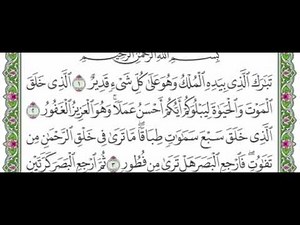 بِسْمِ اللَّهِ الرَّحْمَٰنِ الرَّحِيمِ
تَبَٰرَكَ ٱلَّذِى بِيَدِهِ ٱلْمُلْكُ وَهُوَ عَلَىٰ كُلِّ شَىْءٍ قَدِيرٌ ١ ٱلَّذِى خَلَقَ
ٱلْمَوْتَ وَٱلْحَيَوٰةَ لِيَبْلُوَكُمْ أَيُّكُمْ أَحْسَنُ عَمَلًا ۚ وَهُوَ ٱلْعَزِيزُ ٱلْغَفُورُ ٢
ٱلَّذِى خَلَقَ سَبْعَ سَمَٰوَٰتٍ طِبَاقًا ۖ مَّا تَرَىٰ فِى خَلْقِ ٱلرَّحْمَٰنِ مِن
تَفَٰوُتٍ ۖ فَٱرْجِعِ ٱلْبَصَرَ هَلْ تَرَىٰ مِن فُطُورٍ ٣ ثُمَّ ٱرْجِعِ ٱلْبَصَرَ كَرَّتَيْنِ